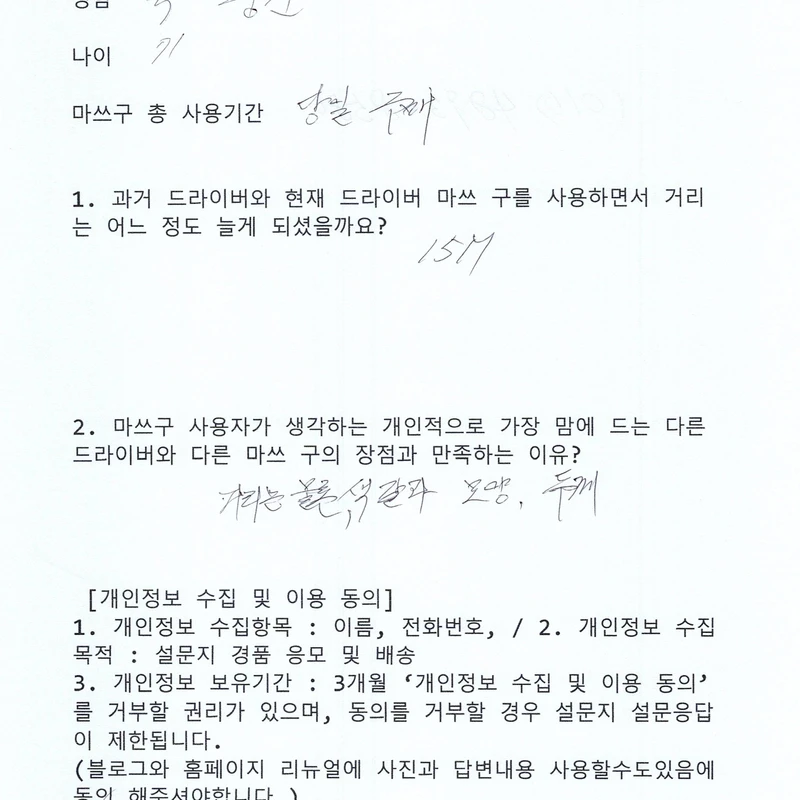 성함
나이 71
마쓰구 총 사용기간 당일 구매
1. 과거 드라이버와 현재 드라이버 마쓰 구를 사용하면서 거리
는 어느 정도 늘게 되셨을까요?
15M
2. 마쓰구 사용자가 생각하는 개인적으로 가장 맘에 드는 다른
드라이버와 다른 마쓰 구의 장점과 만족하는 이유?
거리는 물론, 색깔과 모양, 두께
[개인정보 수집 및 이용 동의]
1. 개인정보 수집항목 : 이름, 전화번호, / 2. 개인정보 수집
목적 : 설문지 경품 응모 및 배송
3. 개인정보 보유기간 : 3개월 ‘개인정보 수집 및 이용 동의’
를 거부할 권리가 있으며, 동의를 거부할 경우 설문지 설문응답
이 제한됩니다.
(블로그와 홈페이지 리뉴얼에 사진과 답변내용 사용할수도있음에
동의 해주셔야합니다.)